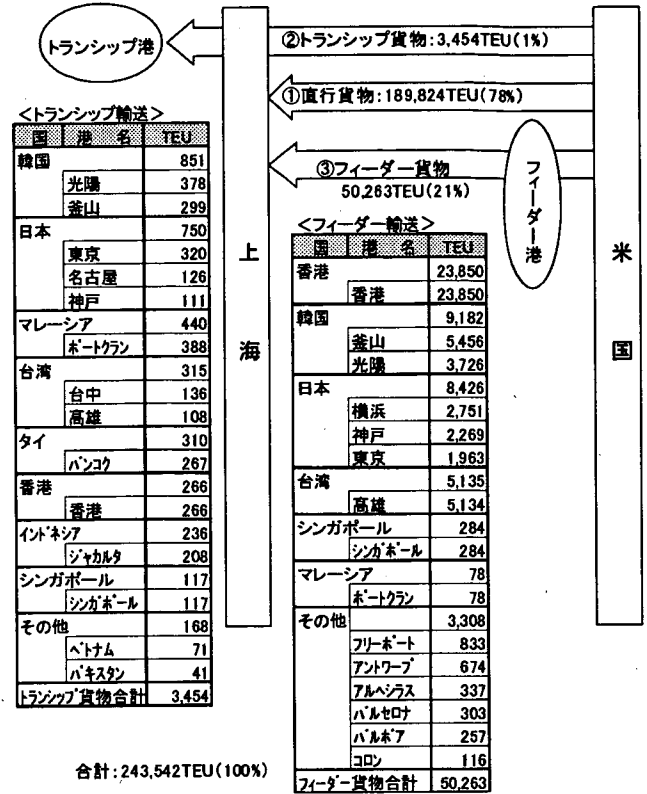 トランシップ港
②トランシップ貨物:3,454TEU(1%)
①直行貨物:189,824TEU(78%)
③フィーダー貨物
50,263TEU(21%)
フィーダー港
上海
米国
<トランシップ輸送>
国 港名 TEU
韓国 851
光陽 378
釜山 299
日本 750
東京 320
名古屋 126
神戸 111
マレーシア 440
ポートクラン 388
台湾 315
台中 136
高雄 108
タイ 310
バンコク 267
香港 266
香港 266
インドネシア 236
ジャカルタ 208
シンガポール 117
シンガポール 117
その他 168
ベトナム 71
パキスタン 41
トランシップ貨物合計 3,454
合計:243,542TEU(100%)
<フィーダー輸送>
国 港名 TEU
香港 23,850
香港 23,850
韓国 9,182
釜山 5,456
光陽 3,726
日本 8,426
横浜 2,751
神戸 2,269
東京 1,963
台湾 5,135
高雄 5,134
シンガポール 284
シンガポール 284
マレーシア 78
ポートクラン 78
その他 3,308
フリーポート 833
アントワープ 674
アルヘシラス 337
バルセロナ 303
バルボア 257
コロン 116
フィーダー貨物合計 50,263